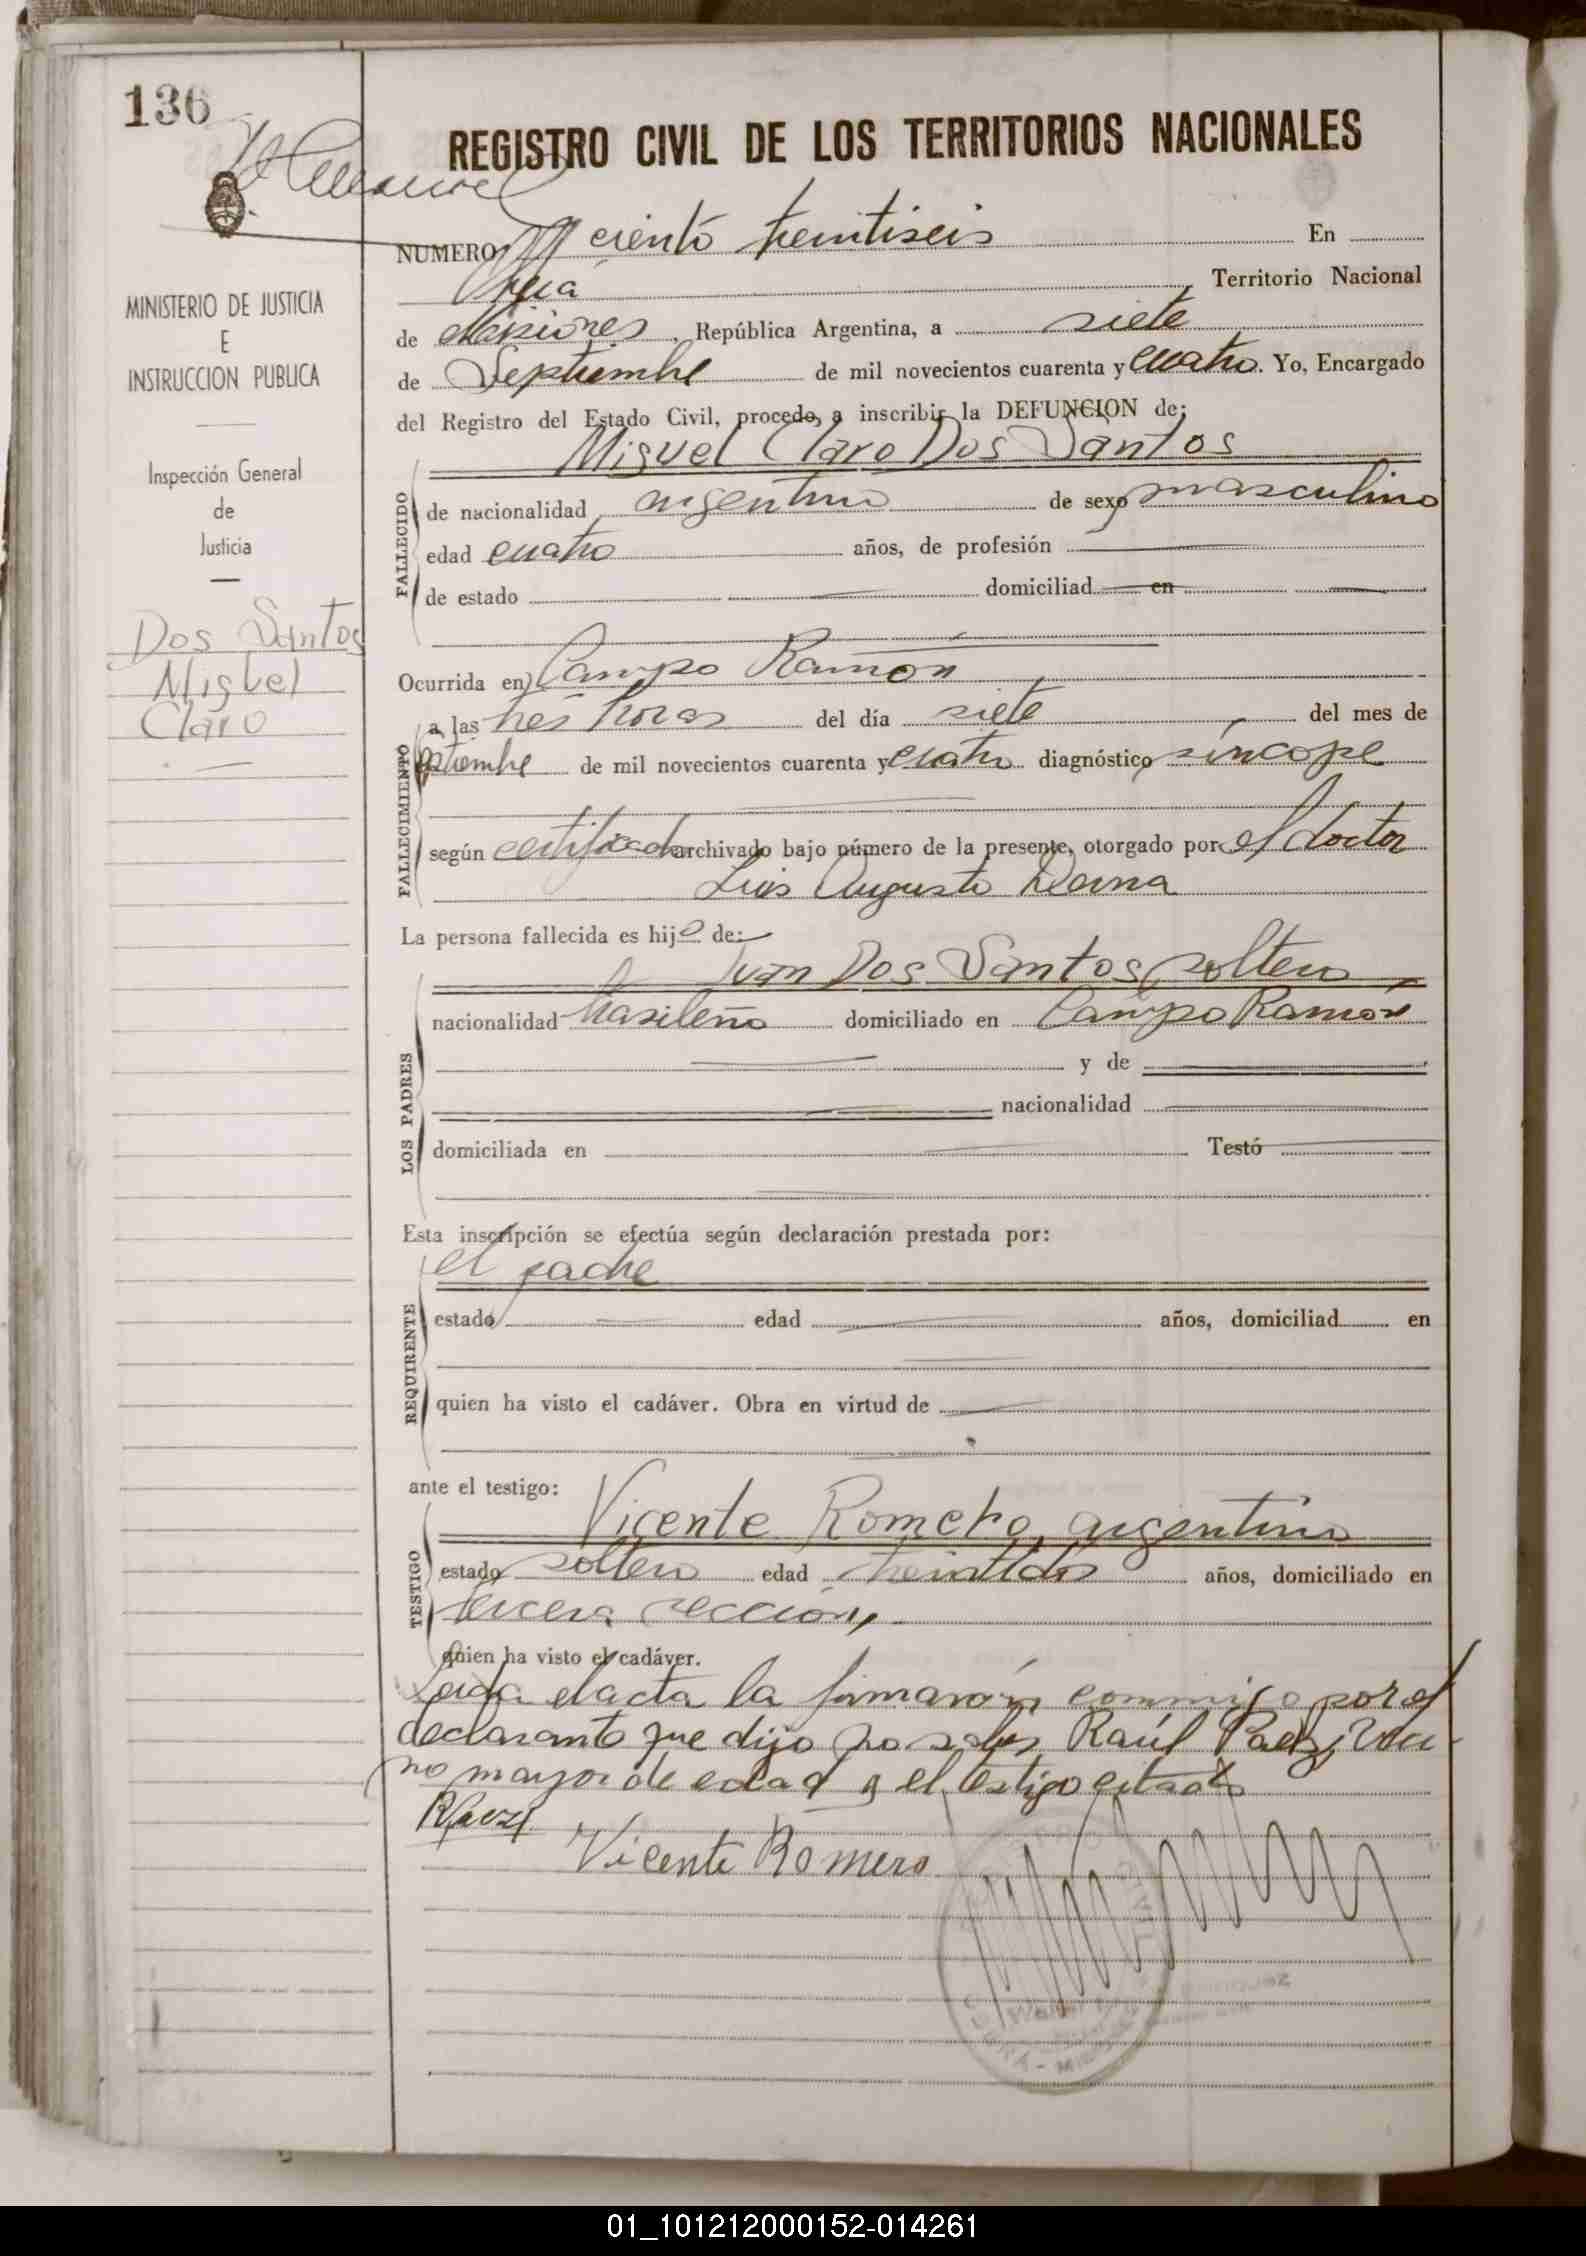 136
REGISTRO CIVIL DE LOS TERRITORIOS NACIONALES
NUMERO ciento treintiseis En
Oberá Territorio Nacional
de Misiones, República Argentina, a siete
de Septiembre de mil novecientos cuarenta y cuatro. Yo, Encargado
del Registro del Estado Civil, procedo, a inscribir la DEFUNCION de:
Miguel Claro Dos Santos
MINISTERIO DE JUSTICIA
E
INSTRUCCION PUBLICA
Inspección General
de
Justicia
Dos Santos
Miguel
Claro
FALLECIDO
de nacionalidad argentino de sexo masculino
edad cuatro años, de profesión
de estado domiciliad en
Ocurrida en Campo Ramón
FALLECIMIENTO
a las tres horas del día siete del mes de
septiembre de mil novecientos cuarenta y cuatro diagnóstico síncope
según certificado archivado bajo número de la presente, otorgado por el doctor
Luis Augusto
La persona fallecida es hijo de:
LOS PADRES
Juan Dos Santos, soltero,
nacionalidad brasileño domiciliado en Campo Ramón
y de
nacionalidad
domiciliada en Testó
Esta inscripción se efectúa según declaración prestada por:
REQUIRENTE
el padre
estado edad años, domiciliad en
quien ha visto el cadáver. Obra en virtud de
ante el testigo:
TESTIGO
Vicente Romero, argentino
estado soltero edad treintidos años, domiciliado en
tercera sección,
quien ha visto el cadáver.
Leida el acta la firmarón conmigo por el
declarante que dijo no saber Raúl Paez, veci-
no mayor de edad y el testigo citado
RPaez
Vicente Romero
01_101212000152-014261